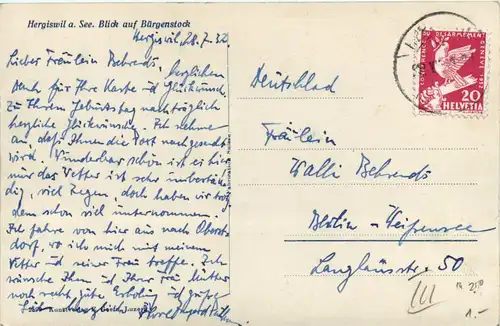 Hergiswil a. See. Blick auf Bürgenstock
Hergiswil, 28.7.32.
Liebes Fräulein Behrends, herzlichen
Dank für Ihre Karte ud Glückwunsch.
Zu Ihrem Geburtstag nachträglich
herzliche Glückwünsche. Ich nehme
an, daß Ihnen die Post nachgesandt
wird. Wunderbar schön ist es hier
nur das Wetter ist sehr unbestän-
dig, viel Regen, doch haben wir trotz
dem schon viel unternommen.
Ich fahre von hier aus nach Oberst
dorf, wo ich mich mit meinem
Vetter ud seiner Frau treffe. Ich
wünsche Ihnen ud Ihrer Frau Mutter
noch recht gute Erholung ud grüße
Sie herzlichst
Deutschland
Fräulein
Walli Behrends
Berlin-Weißensee
Langhansstr. 50
DESARMEMENT
GENEVE 1932
20
HELVETIA
III
1.-